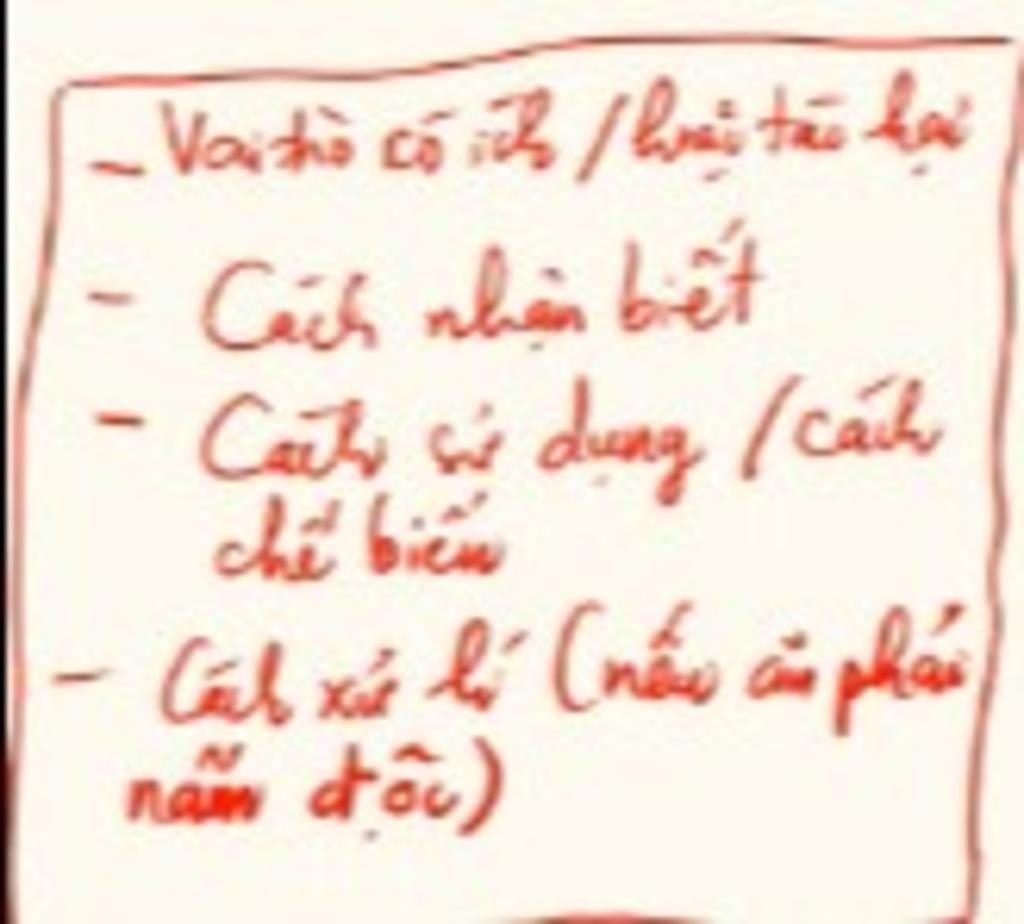 - Vai trò có ích / hoặc tác hại
- Cách nhận biết
- Cách sử dụng / cách
chế biến
- Cách xử lí (nếu ăn phải
nấm độc)